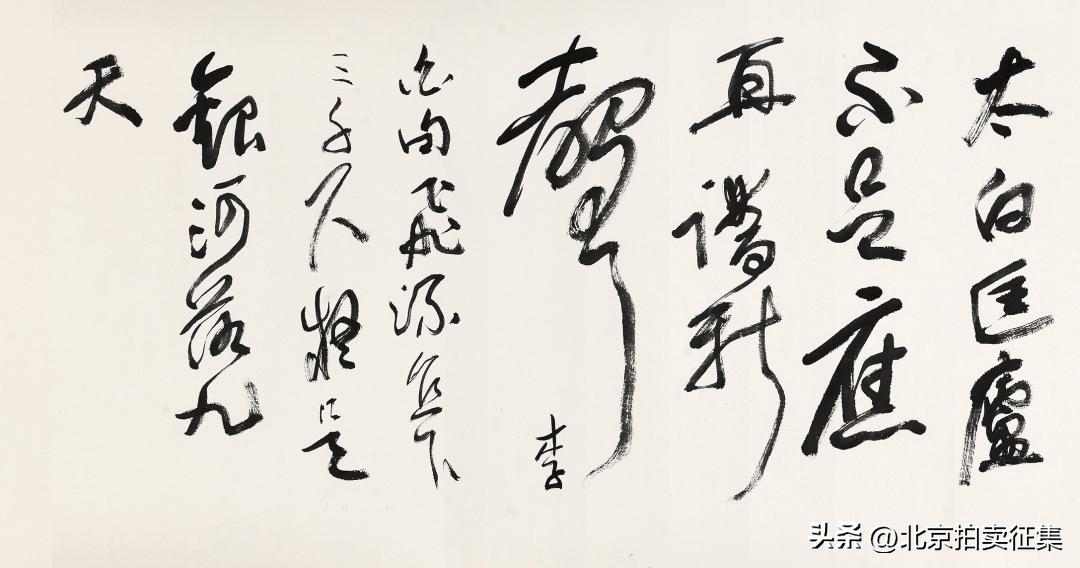 太白匡廬
應
再譜新
聲 李
白句飛流直下
三千尺疑是
銀河落九
天
头条 @北京拍卖征集